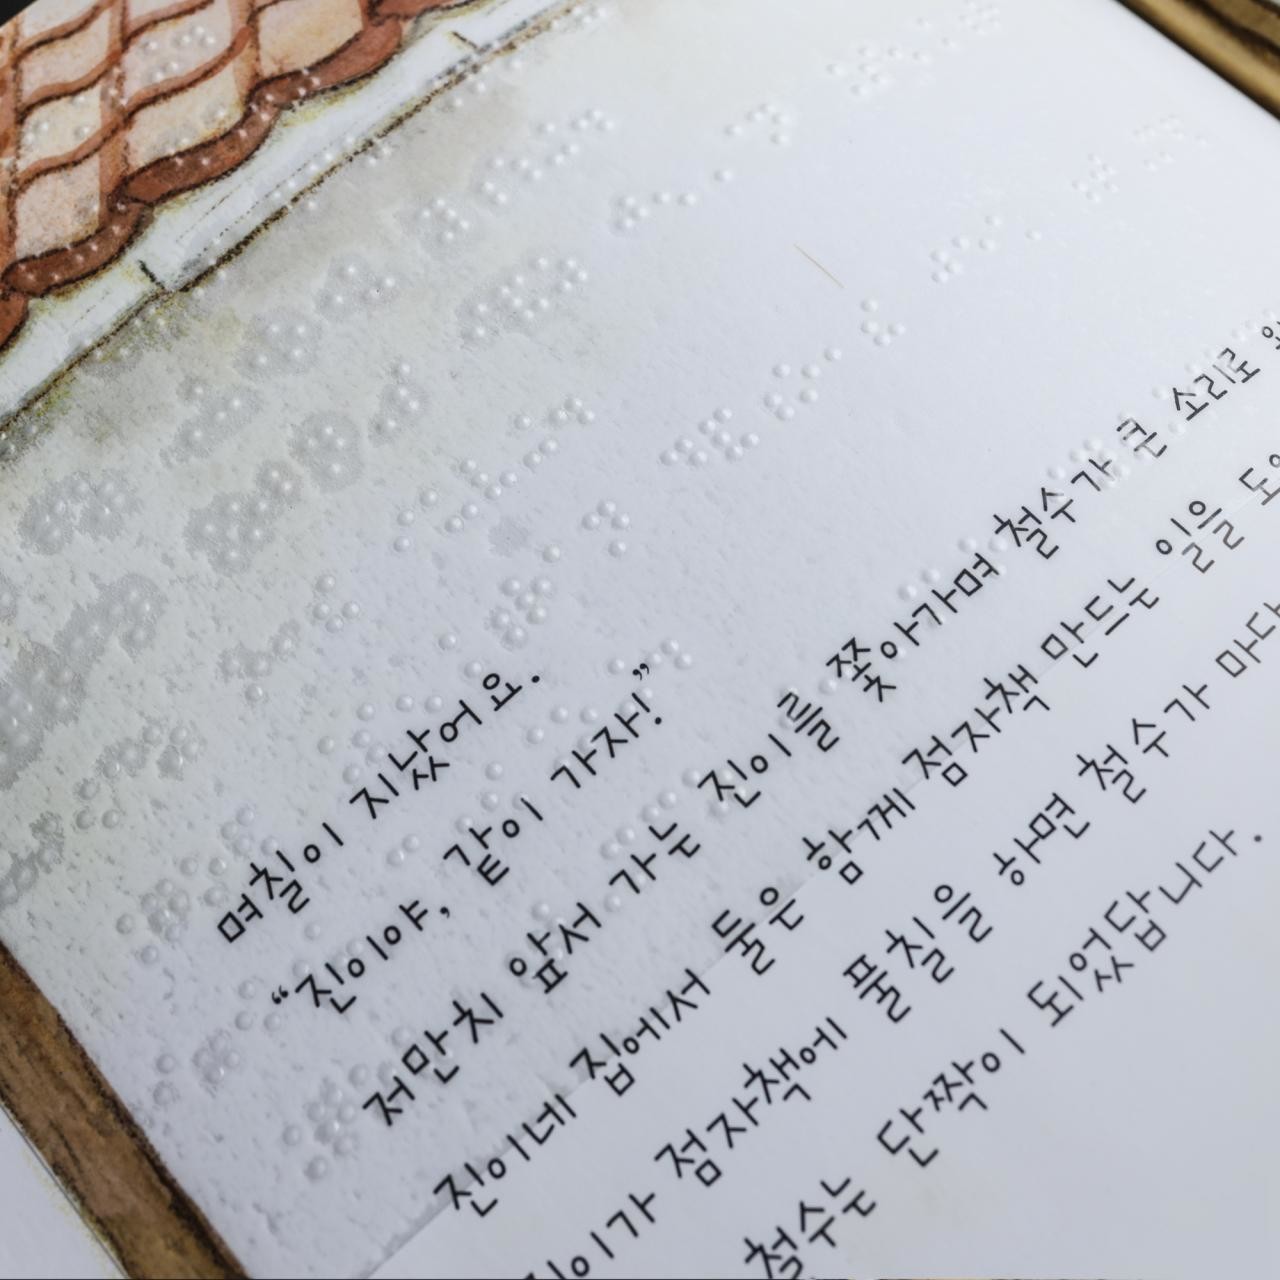 며칠이 지났어요.
“진이야, 같이 가자!”
저만치 앞서 가는 진이를 쫓아가며 철수가 큰 소리로
진이네 집에서 둘은 함께 점자책 만드는 일을
점자책에 풀칠을 하면 철수가
철수는 단짝이 되었답니다.